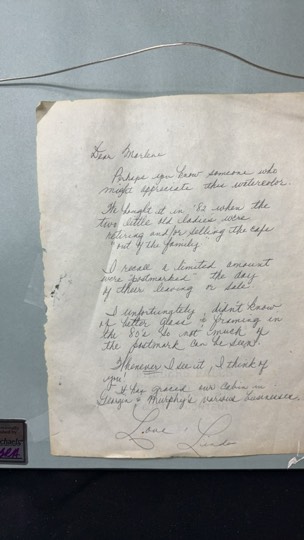 Dear Marlene
Perhaps you know someone who
might appreciate this watercolor.
We bought it in '82 when the
two little old ladies were
retiring and/or selling the cafe
out of the family
I recall a limited amount
were "postmarked" the day
of their leaving or sale.
I unfortunately didn't know
of better glass & framing in
the 80's so not much of
the postmark can be seen.
Whenever I see it, I think of
you!
It has graced our cabin in
Georgia & Murphy's various
Love, Linda